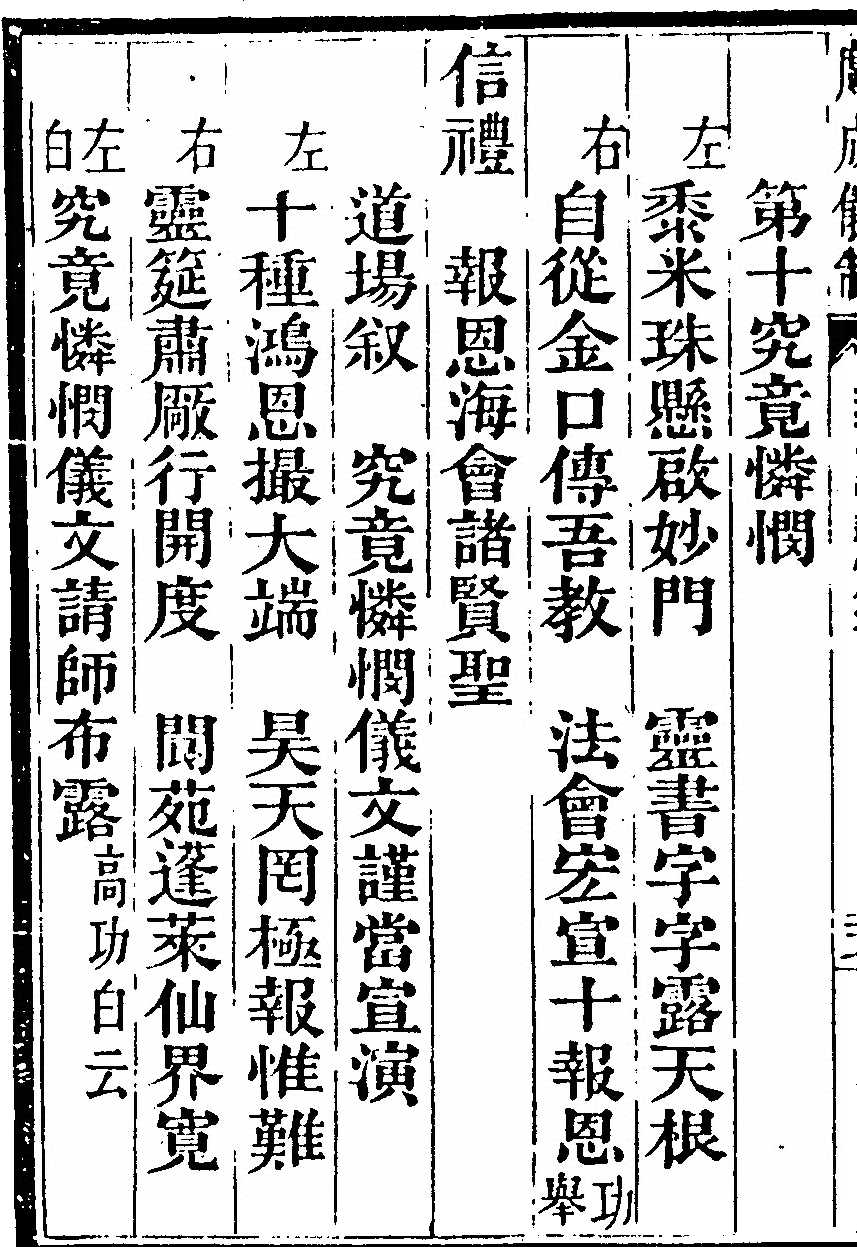 第十究竟憐憫
左 黍米珠懸啟妙門 靈書字字露天根
右 自從金口傳吾教 法會宏宣十報恩 功舉
信禮 報恩海會諸賢聖
道場叙 究竟憐憫儀文謹當宣演
左 十種鴻恩撮大端 昊天罔極報惟難
右 靈筵肅厰行開度 閬苑蓬萊仙界寬
左白 究竟憐憫儀文請師布露 高功白云